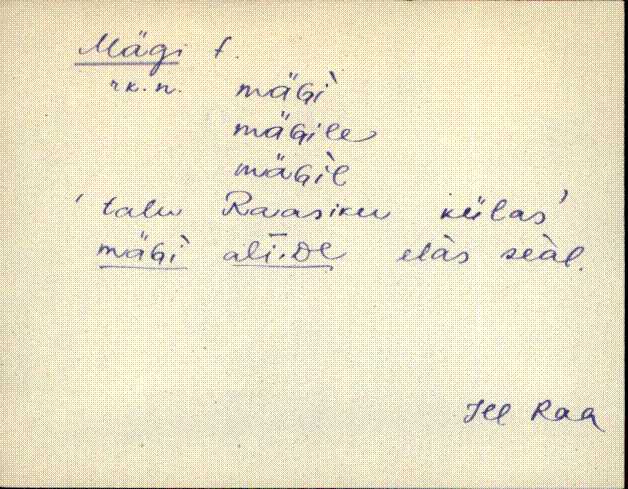 Mägi t.
rk. n. mäGì
mäGile
mäGìl
'talu Raasiku külas'
mäGì alī.DE elàs seàl.
JEL Raa